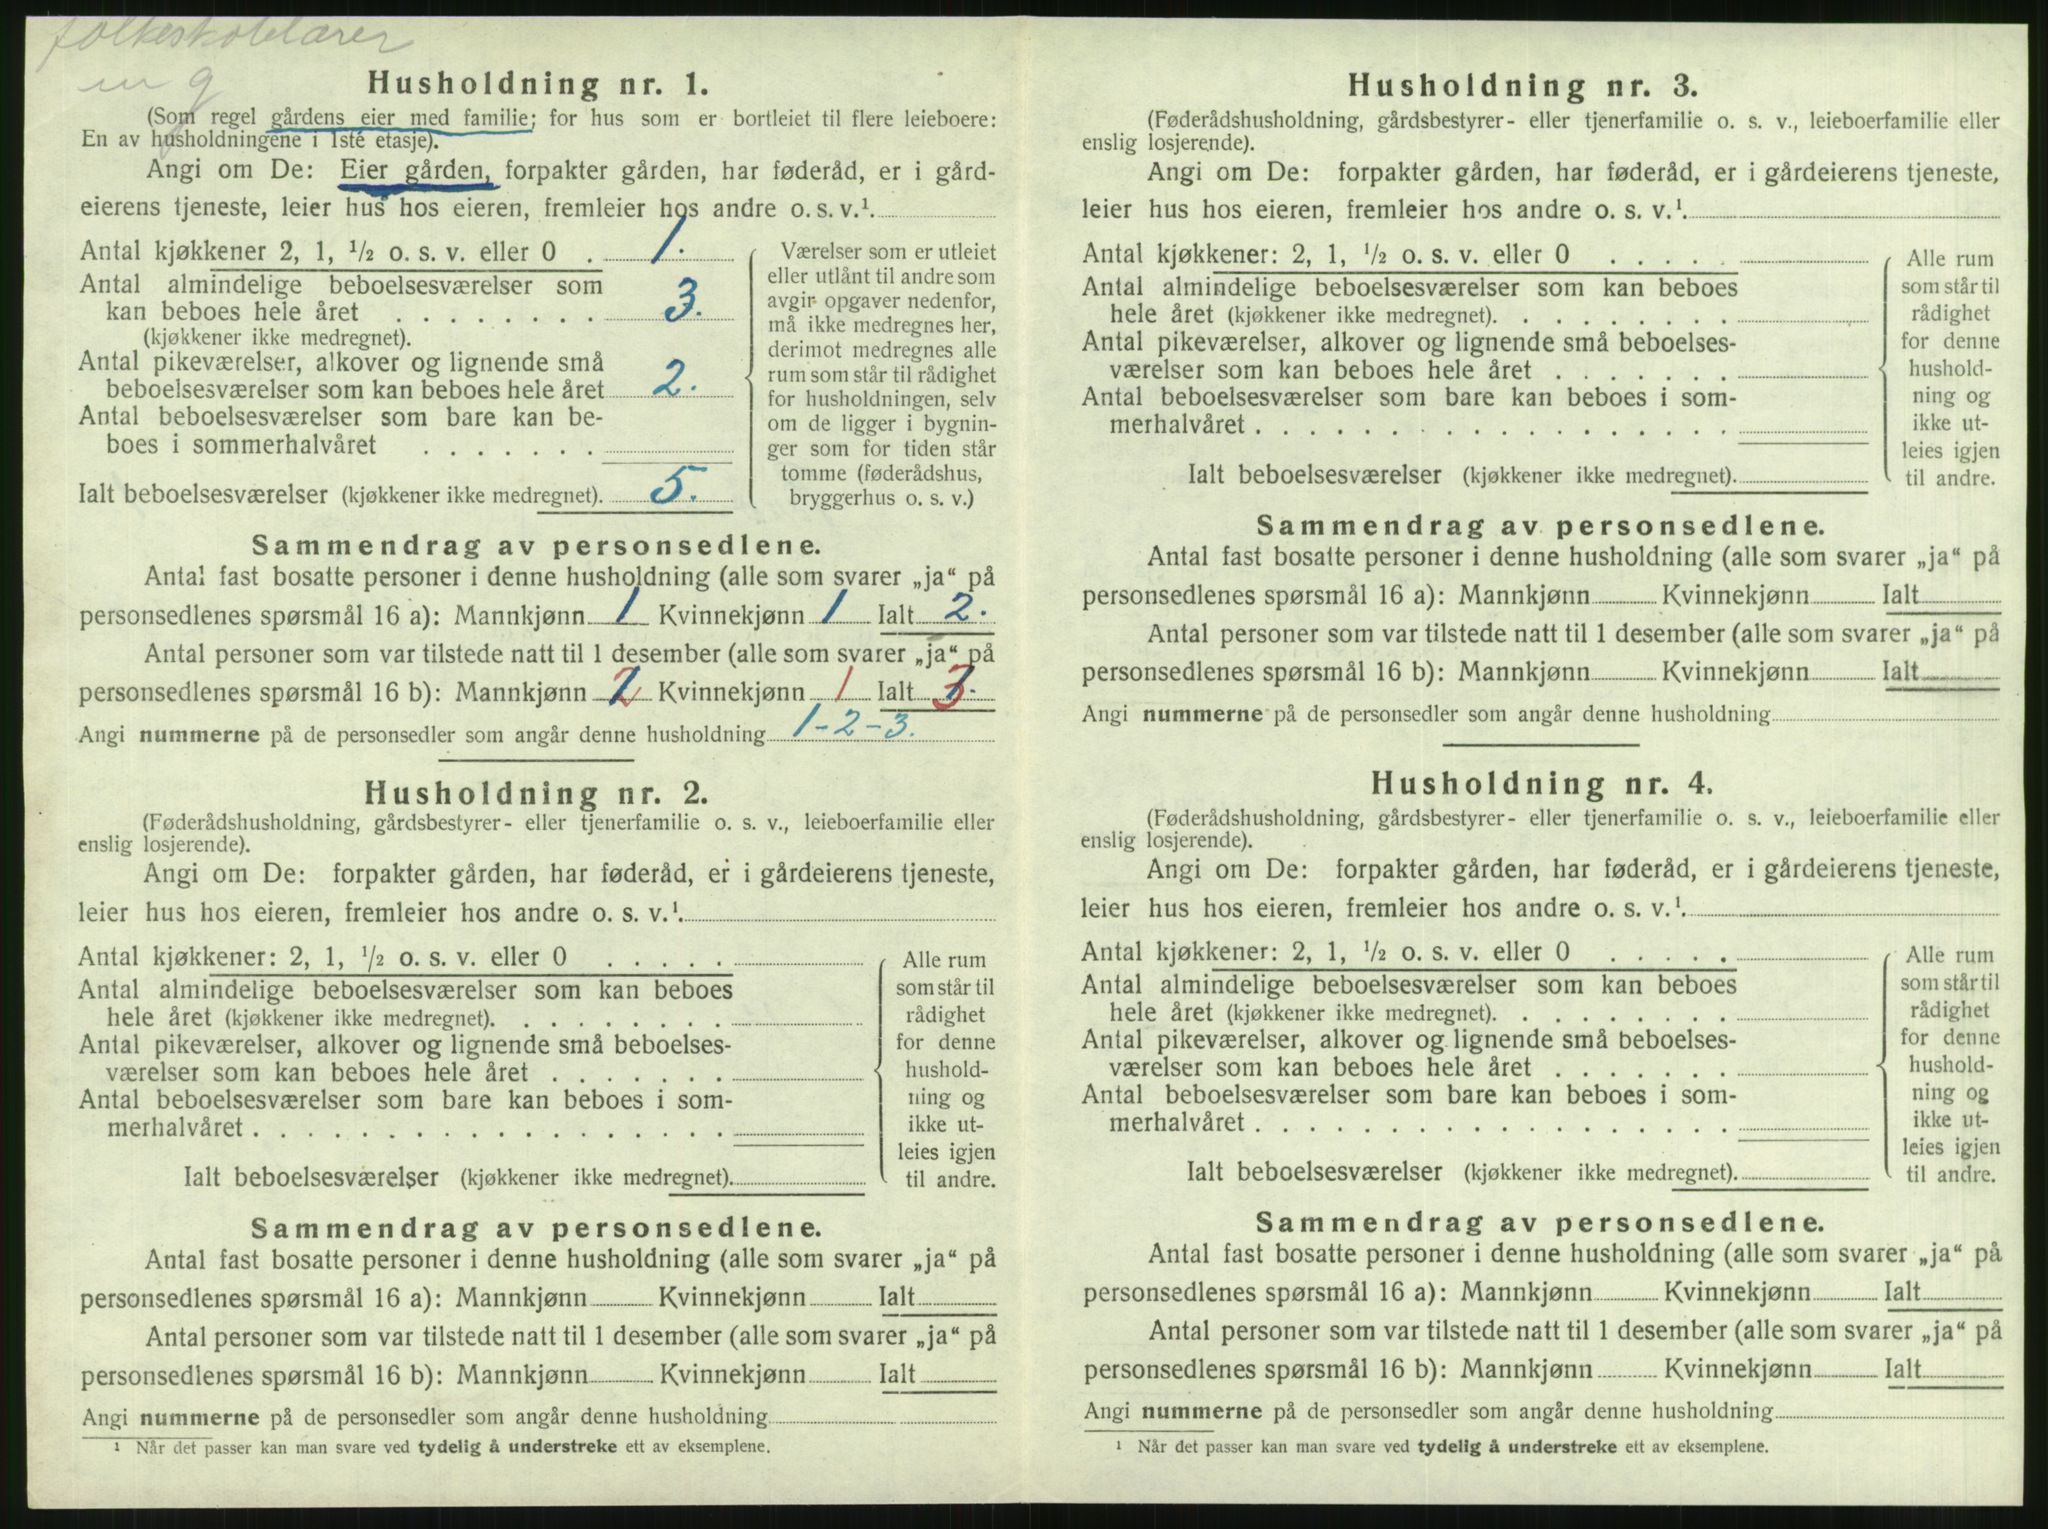 folkeskolelærer
m g
Husholdning nr. 1.
(Som regel gårdens eier med familie; for hus som er bortleiet til flere leieboere:
En av husholdningene i 1ste etasje).
Angi om De: Eier gården, forpakter gården, har føderåd, er i gård-
eierens tjeneste, leier hus hos eieren, fremleier hos andre o. s. v.¹.
Antal kjøkkener 2, 1, ½ o. s. v. eller 0 . 1.
Antal almindelige beboelsesværelser som
kan beboes hele året . . . . . . . . 3.
(kjøkkener ikke medregnet).
Antal pikeværelser, alkover og lignende små
beboelsesværelser som kan beboes hele året 2.
Antal beboelsesværelser som bare kan be-
boes i sommerhalvåret . . . . . . .
Ialt beboelsesværelser (kjøkkener ikke medregnet). 5.
Værelser som er utleiet
eller utlånt til andre som
avgir opgaver nedenfor,
må ikke medregnes her,
derimot medregnes alle
rum som står til rådighet
for husholdningen, selv
om de ligger i bygnin-
ger som for tiden står
tomme (føderådshus,
bryggerhus o. s. v.)
Sammendrag av personsedlene.
Antal fast bosatte personer i denne husholdning (alle som svarer „ja“ på
personsedlenes spørsmål 16 a): Mannkjønn 1 Kvinnekjønn 1 Ialt 2.
Antal personer som var tilstede natt til 1 desember (alle som svarer „ja“ på
personsedlenes spørsmål 16 b): Mannkjønn 2 Kvinnekjønn 1 Ialt 3
Angi nummerne på de personsedler som angår denne husholdning 1-2-3.
Husholdning nr. 2.
(Føderådshusholdning, gårdsbestyrer- eller tjenerfamilie o. s. v., leieboerfamilie eller
enslig losjerende).
Angi om De: forpakter gården, har føderåd, er i gårdeierens tjeneste,
leier hus hos eieren, fremleier hos andre o. s. v.¹.
Antal kjøkkener: 2, 1, ½ o. s. v. eller 0 . . . . .
Antal almindelige beboelsesværelser som kan beboes
hele året (kjøkkener ikke medregnet). . . . . . . . .
Antal pikeværelser, alkover og lignende små beboelses-
værelser som kan beboes hele året . . . . . . .
Antal beboelsesværelser som bare kan beboes i som-
merhalvåret . . . . . . . . . . . . . . . . . .
Ialt beboelsesværelser (kjøkkener ikke medregnet).
Alle rum
som står til
rådighet
for denne
hushold-
ning og
ikke ut-
leies igjen
til andre.
Sammendrag av personsedlene.
Antal fast bosatte personer i denne husholdning (alle som svarer „ja“ på
personsedlenes spørsmål 16 a): Mannkjønn Kvinnekjønn Ialt
Antal personer som var tilstede natt til 1 desember (alle som svarer „ja“ på
personsedlenes spørsmål 16 b): Mannkjønn Kvinnekjønn Ialt
Angi nummerne på de personsedler som angår denne husholdning
¹ Når det passer kan man svare ved tydelig å understreke ett av eksemplene.
Husholdning nr. 3.
(Føderådshusholdning, gårdsbestyrer- eller tjenerfamilie o. s. v., leieboerfamilie eller
enslig losjerende).
Angi om De: forpakter gården, har føderåd, er i gårdeierens tjeneste,
leier hus hos eieren, fremleier hos andre o. s. v.¹.
Antal kjøkkener: 2, 1, ½ o. s. v. eller 0 . . . . .
Antal almindelige beboelsesværelser som kan beboes
hele året (kjøkkener ikke medregnet). . . . . . . . .
Antal pikeværelser, alkover og lignende små beboelses-
værelser som kan beboes hele året . . . . . . .
Antal beboelsesværelser som bare kan beboes i som-
merhalvåret . . . . . . . . . . . . . . . . . .
Ialt beboelsesværelser (kjøkkener ikke medregnet).
Alle rum
som står til
rådighet
for denne
hushold-
ning og
ikke ut-
leies igjen
til andre.
Sammendrag av personsedlene.
Antal fast bosatte personer i denne husholdning (alle som svarer „ja“ på
personsedlenes spørsmål 16 a): Mannkjønn Kvinnekjønn Ialt
Antal personer som var tilstede natt til 1 desember (alle som svarer „ja“ på
personsedlenes spørsmål 16 b): Mannkjønn Kvinnekjønn Ialt
Angi nummerne på de personsedler som angår denne husholdning
Husholdning nr. 4.
(Føderådshusholdning, gårdsbestyrer- eller tjenerfamilie o. s. v., leieboerfamilie eller
enslig losjerende).
Angi om De: forpakter gården, har føderåd, er i gårdeierens tjeneste,
leier hus hos eieren, fremleier hos andre o. s. v.¹.
Antal kjøkkener: 2, 1, ½ o. s. v. eller 0 . . . . .
Antal almindelige beboelsesværelser som kan beboes
hele året (kjøkkener ikke medregnet). . . . . . . . .
Antal pikeværelser, alkover og lignende små beboelses-
værelser som kan beboes hele året . . . . . . .
Antal beboelsesværelser som bare kan beboes i som-
merhalvåret . . . . . . . . . . . . . . . . . .
Ialt beboelsesværelser (kjøkkener ikke medregnet).
Alle rum
som står til
rådighet
for denne
hushold-
ning og
ikke ut-
leies igjen
til andre.
Sammendrag av personsedlene.
Antal fast bosatte personer i denne husholdning (alle som svarer „ja“ på
personsedlenes spørsmål 16 a): Mannkjønn Kvinnekjønn Ialt
Antal personer som var tilstede natt til 1 desember (alle som svarer „ja“ på
personsedlenes spørsmål 16 b): Mannkjønn Kvinnekjønn Ialt
Angi nummerne på de personsedler som angår denne husholdning
¹ Når det passer kan man svare ved tydelig å understreke ett av eksemplene.